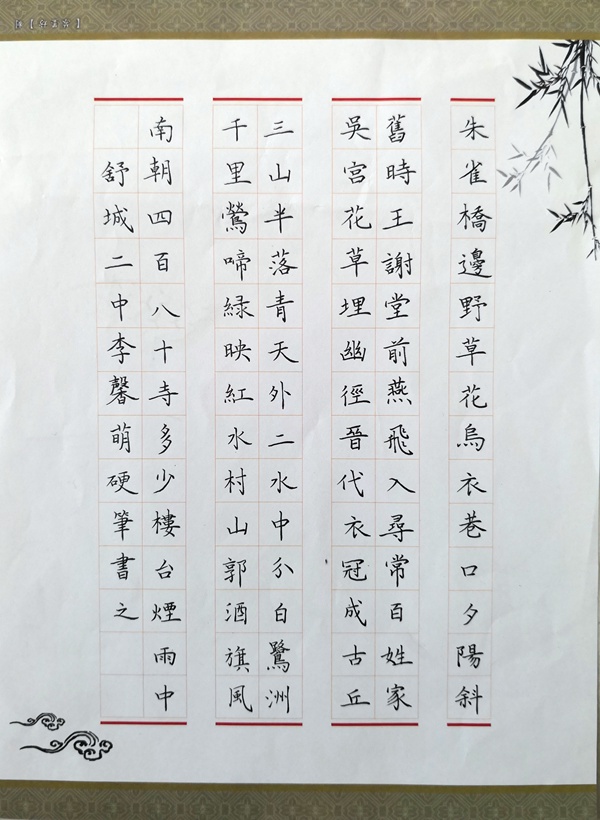 朱雀橋邊野草花烏衣巷口夕陽斜
舊時王謝堂前燕飛入尋常百姓家
吳宮花草埋幽徑晉代衣冠成古丘
三山半落青天外二水中分白鷺洲
千里鶯啼綠映紅水村山郭酒旗風
南朝四百八十寺多少樓台煙雨中
舒城二中李馨萌硬筆書之